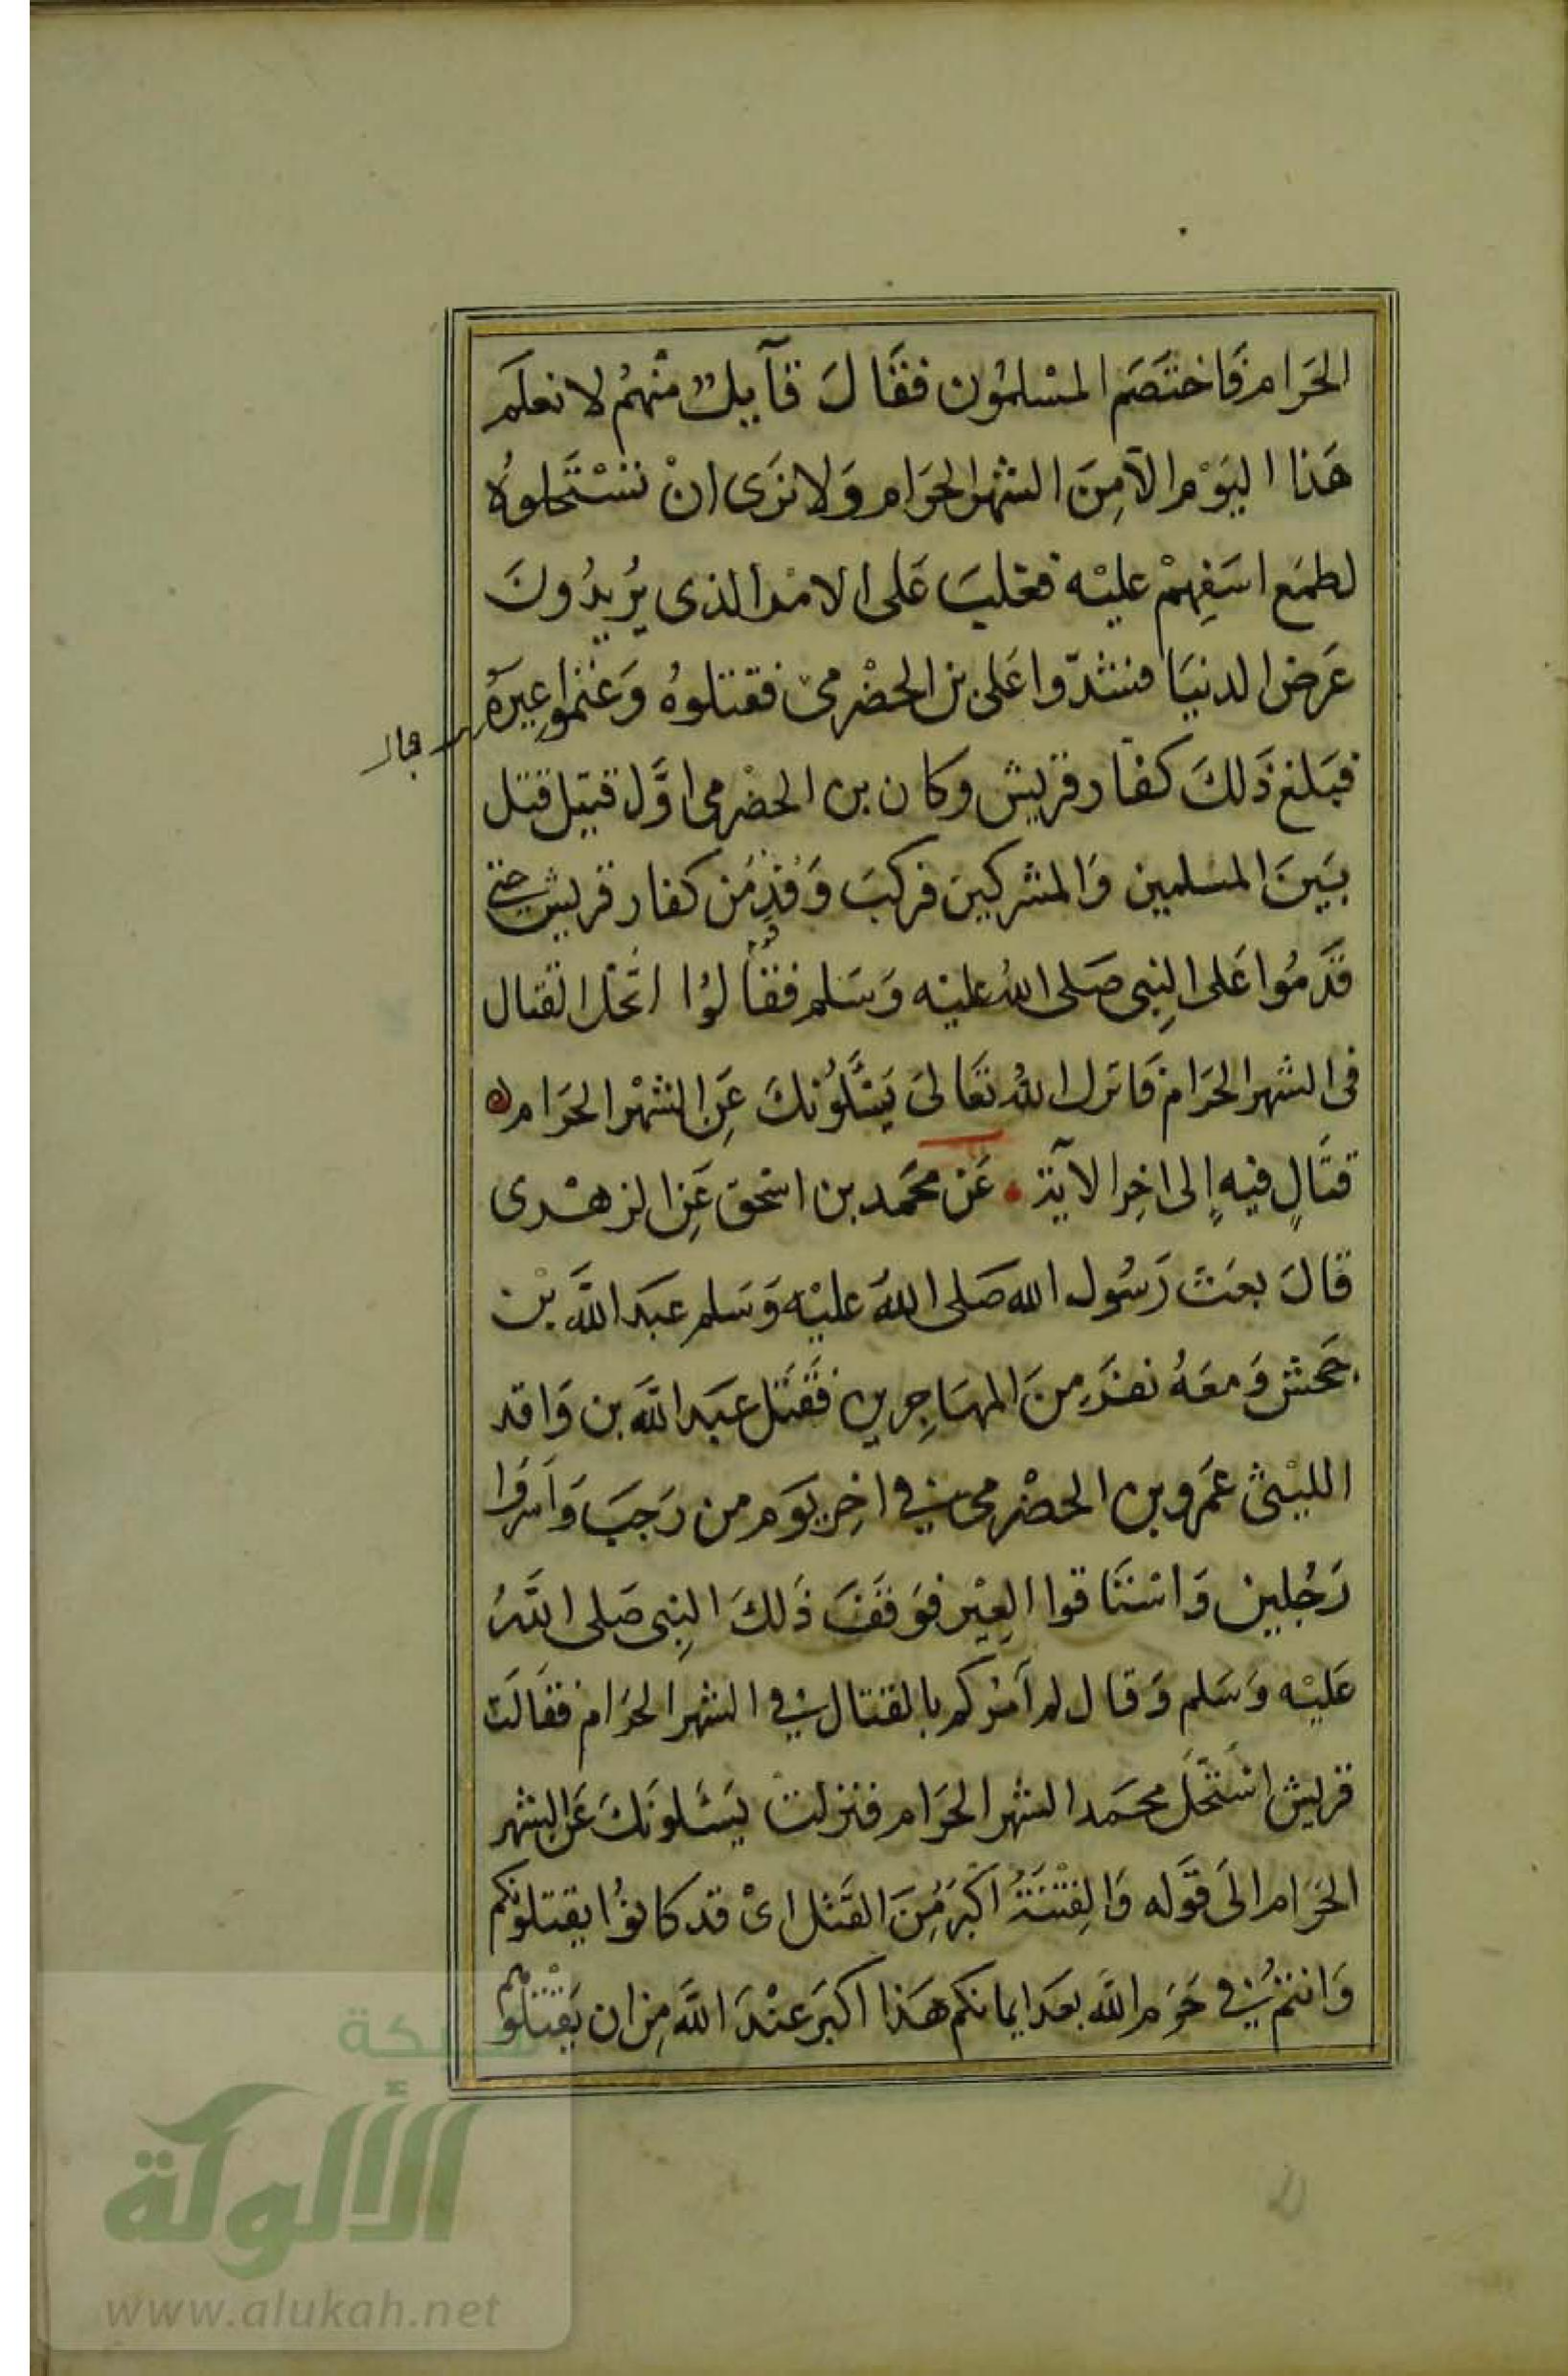 الحَرَام فَاختَصَم المسْلمُون فقَالَ قآيلٌ منْهُم لا نعلَم
هَذا اليَوْم الآ مِنَ الشهر الحرَام وَلا نرَى انْ نسْتَحلوهُ
لطمَع اسَفِهمْ عليْه فغلبَ عَلى الامْر الذى يُريدُونَ
عَرَض الدنيَا فشدّوا عَلى بن الحضْرمى فقتلوهُ وَغنموا عِيرَهُ
فبَلغ ذَلكَ كفار قريش وكان بن الحضْرمى اوَّل قتيل قتل
بَينَ المسلمين وَالمشركينَ فركبَ وَفدٌ مّن كفار قريش حتى
قَدمُوا عَلى النبِى صَلى اللهُ عليْه وَسَلم فقالوُا اتحَل القتال
فى الشهر الحرَام فَانزل اللهُ تعَالىَ يَسْئَلُونكَ عَنِ الشهْر الحرَام
قتَالٍ فيهِ إلى اخِر الآية عَنْ محمَد بن اسْحق عَنِ الزهْرى
قالَ بعَث رَسُول الله صَلى اللهُ عليْه وَسَلم عبدَ اللهَ بن
جَحش وَمعَهُ نفرَ مِنَ المهَاجِرين فقَتَل عبَد اللهَ بن وَاقد
الليْثى عَمَرو بن الحضْرمى فى اخِر يوَم من رَجبَ وَاسَرُوا
رَجُلين وَاسْتَاقوا العِيْر فوَقفَ ذَلكَ النبِى صَلى اللهُ
عَليْه وَسَلم وَقال لم آمُركم بالقتال فى الشهر الحرَام فقالَت
قريش اسْتَحَلَ محمَد الشهر الحرَام فنزلتْ يَسْئَلونَكَ عَن الشهر
الحرَام الىَ قوَله وَالفِتْنَةُ اكْبَرُ مِنَ القَتل اىْ قد كانوُا يقتلونكم
وَانتمْ فى حَرَم اللهَ بعدَ ايمانكم هَذا اكبَر عنْدَ اللهَ مِن ان يَقتلوهم
شبكة
الألوكة
www.alukah.net